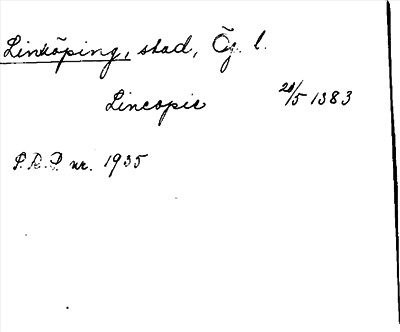 Linköping, stad, Ög. l.
Lincopie 20/5 1383
S.R.P. nr. 1935